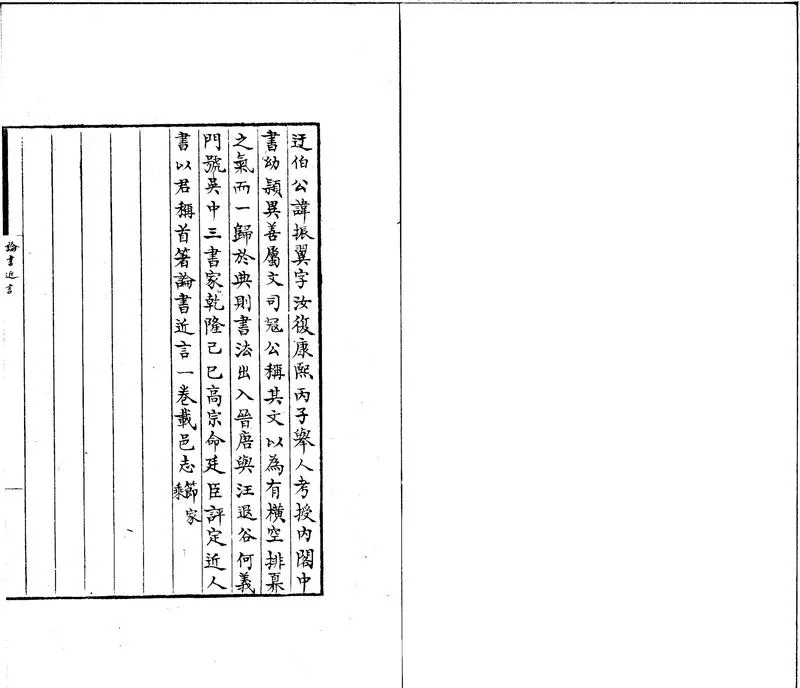 迂伯公諱振翼字汝復康熙丙子舉人考授內閣中
書幼穎異善屬文司冦公稱其文以為有橫空排奡
之氣而一歸於典則書法出入晉唐與汪退谷何義
門號吳中三書家乾隆己巳高宗命廷臣評定近人
書以君稱首箸論書近言一卷載邑志節家乘
論書近言